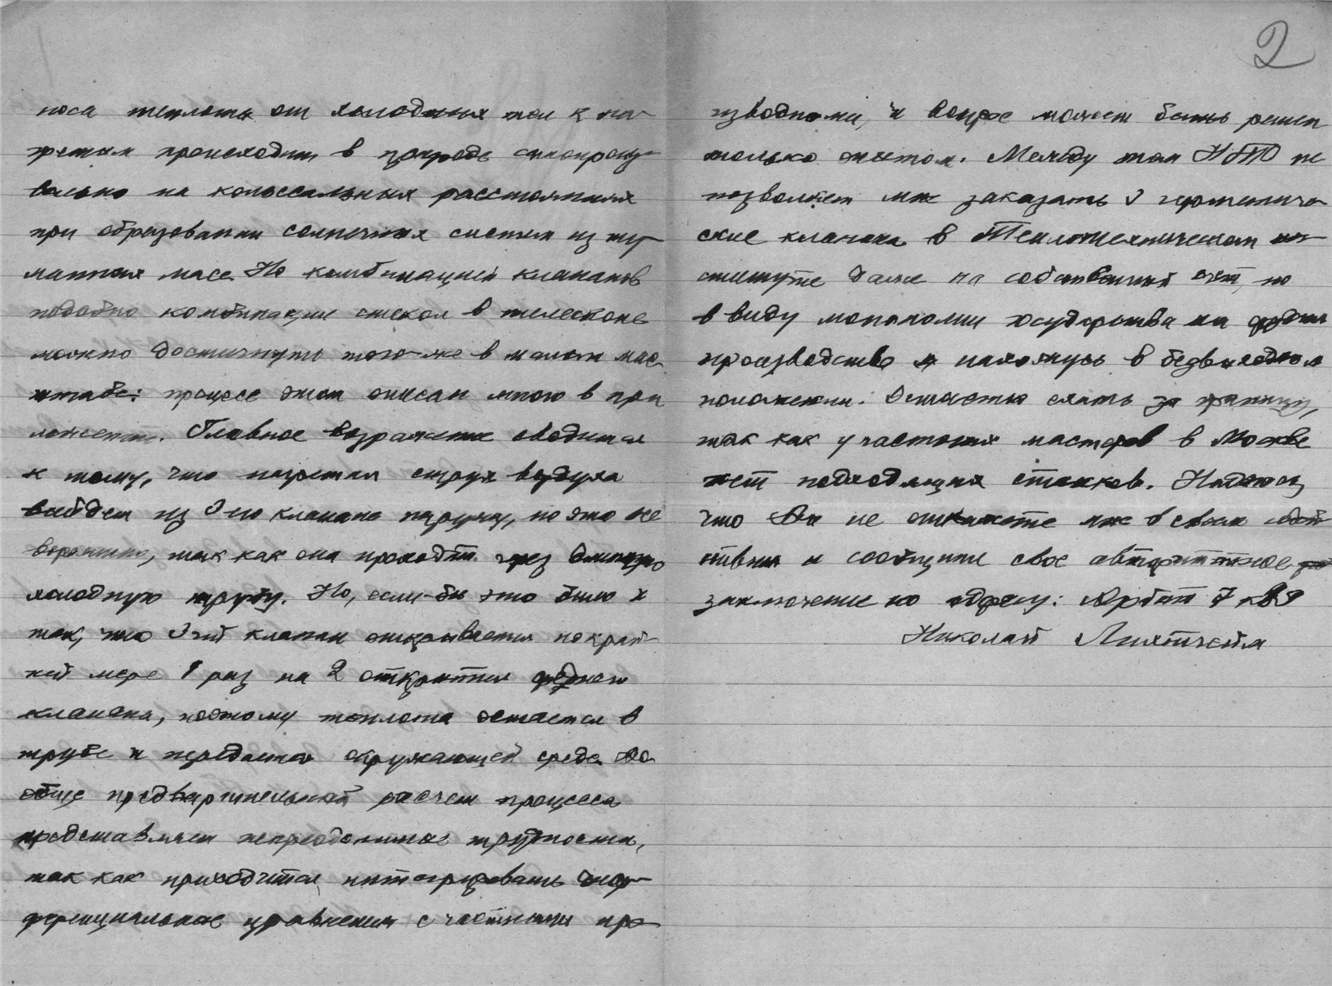 2
носа теплоты от холодных тел к на-
гретым происходит в природе самопроиз-
вольно на колоссальных расстояниях
при образовании солнечных систем из ту-
манных масс. Но комбинацией клапанов
подобно комбинации стекол в телескопе
можно достигнуть того-же в малом мас-
штабе: процесс этот описан мною в при
ложении. Главное возражение сводится
к тому, что нагретая струя воздуха
выйдет из 3-го клапана наружу, но это не
так как она проходит через
холодную трубу. Но, если-бы это было и
так, то 3-ий клапан открывается по край-
ней мере 1 раз на 2 открытия
клапана, поэтому теплота остается в
трубе и передается окружающей среде. Во
обще предварительный расчет процесса
представляет непреодолимые трудности,
так как приходится интегрировать диф-
ференциальные уравнения с частными про-
изводными, и вопрос может быть решен
только опытом. Между тем НТО не
позволяет мне заказать 3 герметиче-
ские клапана в Теплотехническом ин-
ституте даже на собственный счет, но
в виду монополии государства на
производства я нахожусь в безвыходном
положении. за границу,
так как у частных мастеров в Москве
нет подходящих станков. Надеюсь,
что Вы не откажете мне в своем содей-
ствии и сообщите свое авторитетное
заключение по адресу: Арбат 7 кв 9
Николай